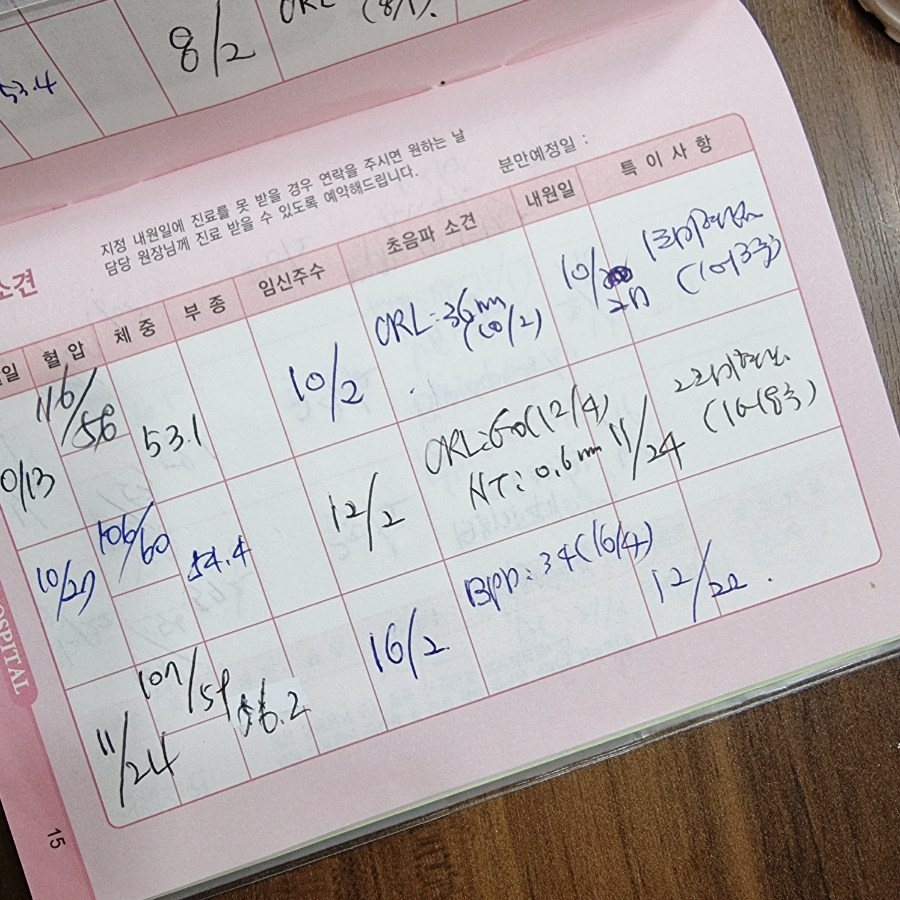 53.4
8/2
CRL
(8/1).
지정 내원일에 진료를 못 받을 경우 연락을 주시면 원하는 날
담당 원장님께 진료 받을 수 있도록 예약해드립니다.
분만예정일 :
소견
일 혈압 체중 부종 임신주수 초음파 소견 내원일 특이사항
0/13 116/58 53.1 10/2 CRL: 36mm (10/2) 10/27 1차기형검사 (10~13주)
10/27 106/60 54.4 12/2 CRL: 60(12/4) 11/24 2차기형검사 (16~18주)
NT: 0.6mm
11/24 107/59 56.2 16/2. BPD: 34(16/4) 12/22.
OSPITAL
15